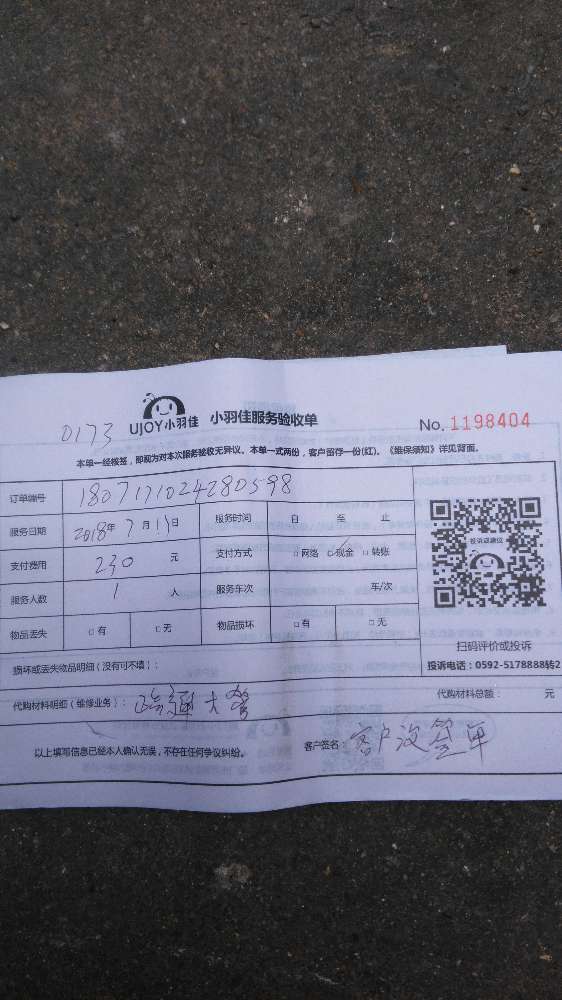 0173
UJOY小羽佳 小羽佳服务验收单 No. 1198404
本单一经核签，即视为对本次服务验收无异议。本单一式两份，客户留存一份(红)。《维保须知》详见背面。
订单编号 1807171024280598
服务日期 2018年 7 月 日 服务时间 自 至 止
支付费用 230 元 支付方式 □网络 □现金 □转账
服务人数 1 人 服务车次 车/次
物品丢失 □有 □无 物品损坏 □有 □无
投诉或建议
扫码评价或投诉
投诉电话：0592-5178888转2
损坏或丢失物品明细（没有可不填）：
代购材料明细（维修业务）： 疏通大管 代购材料总额： 元
以上填写信息已经本人确认无误，不存在任何争议纠纷。 客户签名： 客户没签单